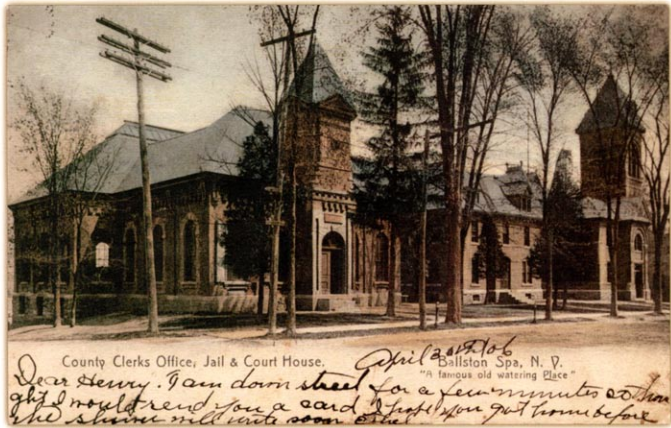 County Clerks Office, Jail & Court House.
April 20th/06
Ballston Spa, N. Y.
"A famous old watering Place"
Dear Henry. I am down street for a few minutes so thou
ght I would send you a card I hope you got home before
the shower will write soon